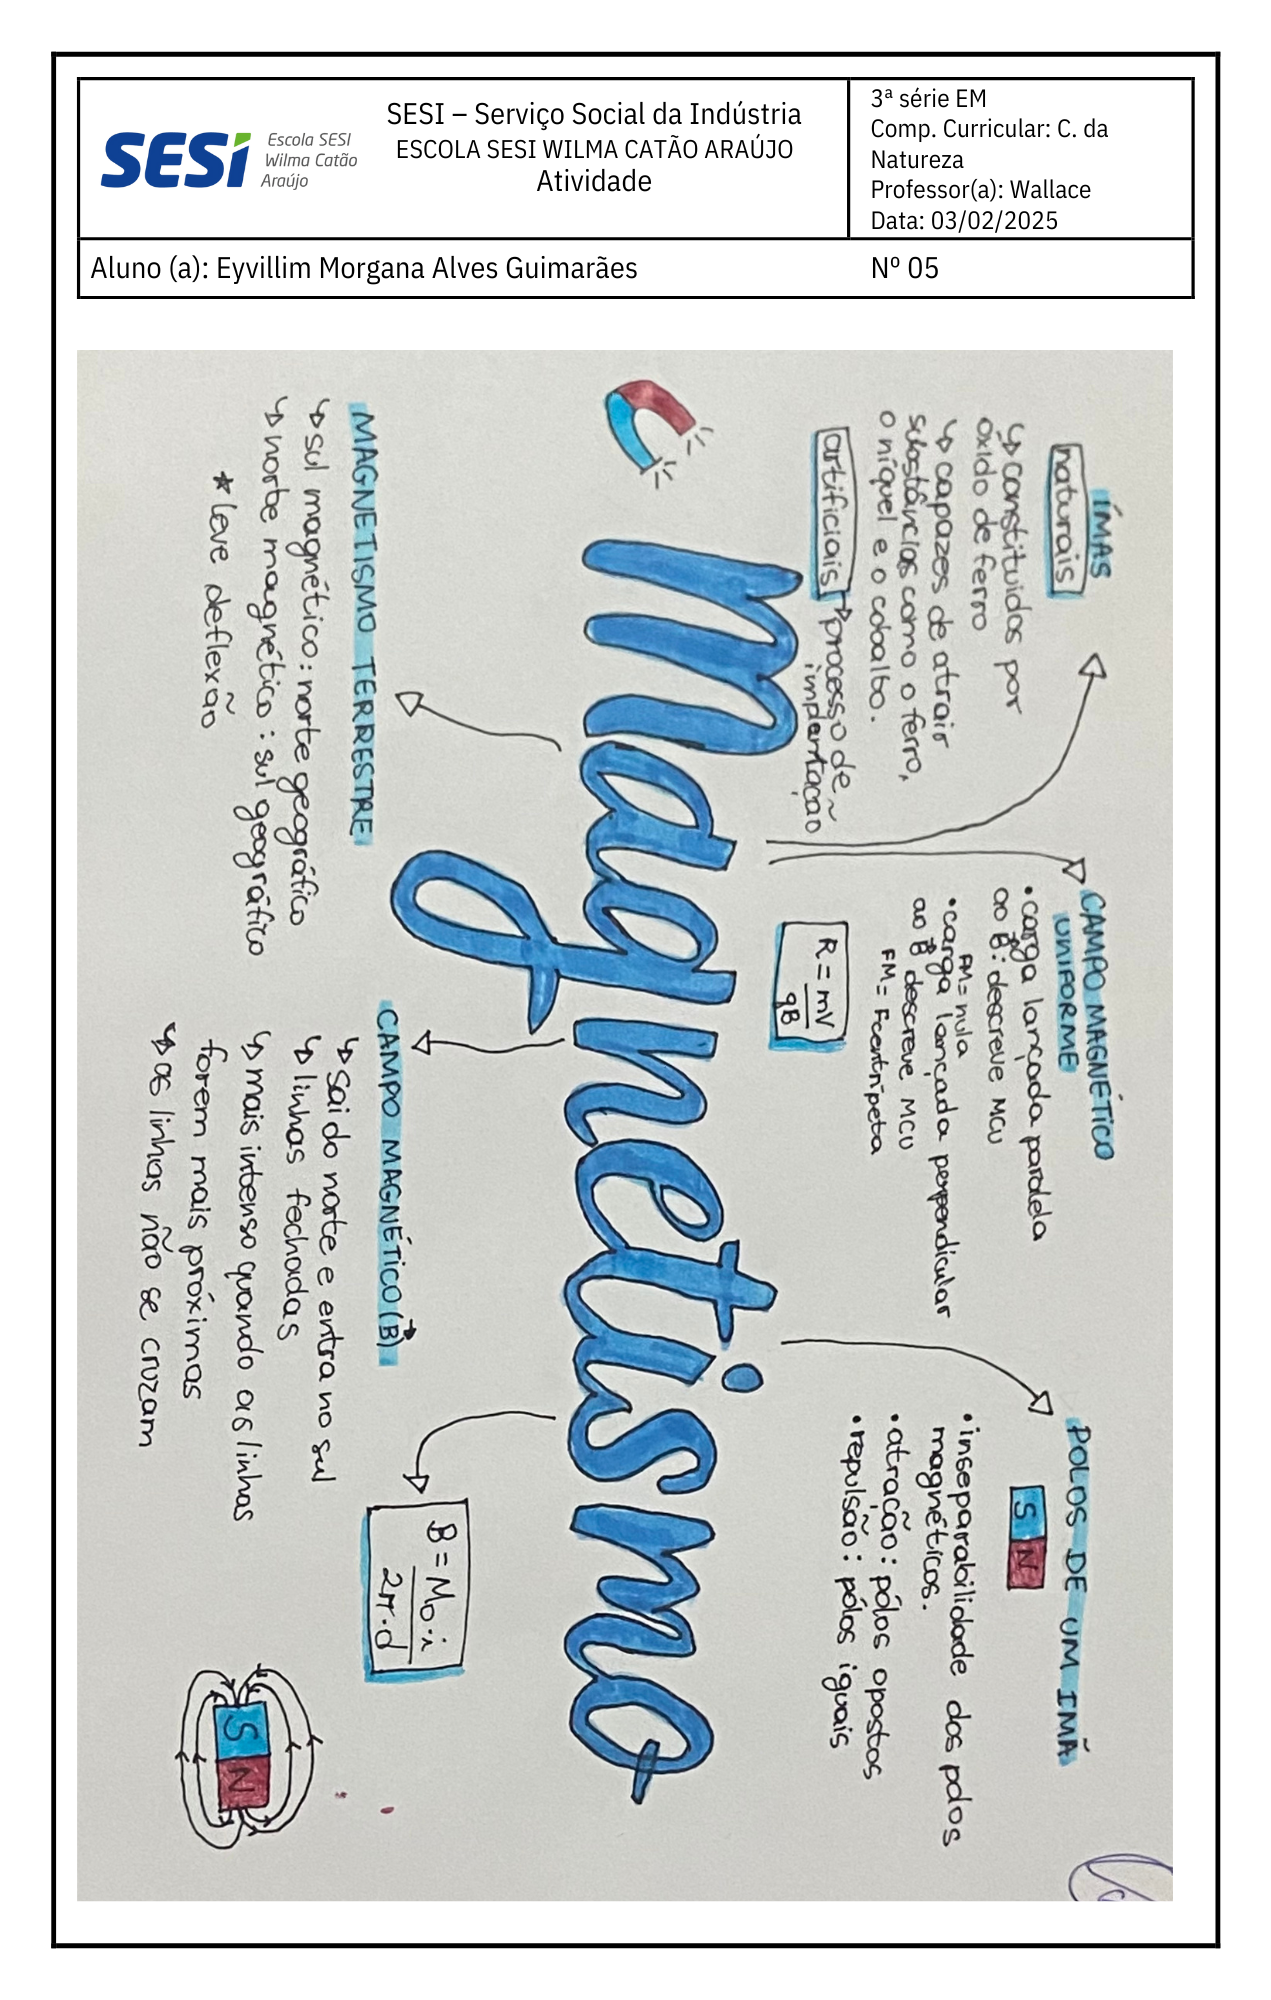 SESI
Escola SESI
Wilma Catão
Araújo
SESI – Serviço Social da Indústria
ESCOLA SESI WILMA CATÃO ARAÚJO
Atividade
3ª série EM
Comp. Curricular: C. da
Natureza
Professor(a): Wallace
Data: 03/02/2025
Aluno (a): Eyvillim Morgana Alves Guimarães
Nº 05
ÍMAS
naturais
↳ constituidos por
óxido de ferro
↳ capazes de atrair
substâncias como o ferro,
o níquel e o cobalto.
artificiais → processo de
imantação
CAMPO MAGNÉTICO
UNIFORME
• carga lançada paralela
ao B: descreve MCU
FM = nula
• carga lançada perpendicular
ao B descreve MCU
FM = Fcentrípeta
R = mV
qB
POLOS DE UM IMÃ
S N
• inseparabilidade dos polos
magnéticos.
• atração: pólos opostos
• repulsão: pólos iguais
Magnetismo
MAGNETISMO TERRESTRE
↳ sul magnético: norte geográfico
↳ norte magnético: sul geográfico
* leve deflexão
CAMPO MAGNÉTICO (B)
↳ sai do norte e entra no sul
↳ linhas fechadas
↳ mais intenso quando as linhas
forem mais próximas
↳ as linhas não se cruzam
B = Mo·i
2π·d
S N